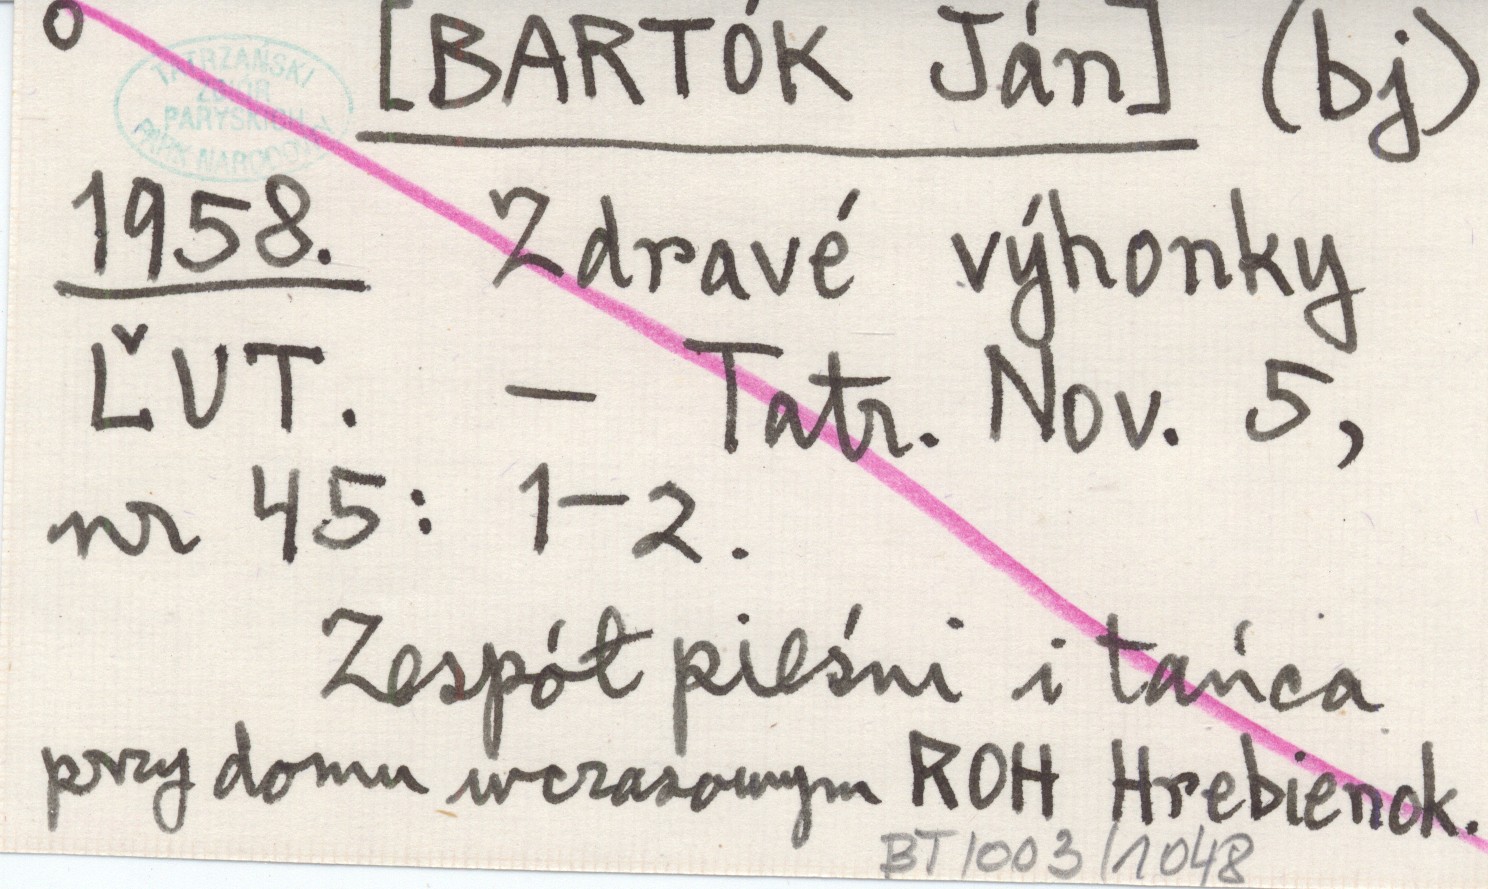 o [BARTÓK Ján] (bj)
TATRZAŃSKI
ZBIÓR
PARYSKICH
PARK NARODOWY
1958. Zdravé výhonky
ĽUT. – Tatr. Nov. 5,
nr 45: 1–2.
Zespół pieśni i tańca
przy domu wczasowym ROH Hrebienok.
BT1003/1048